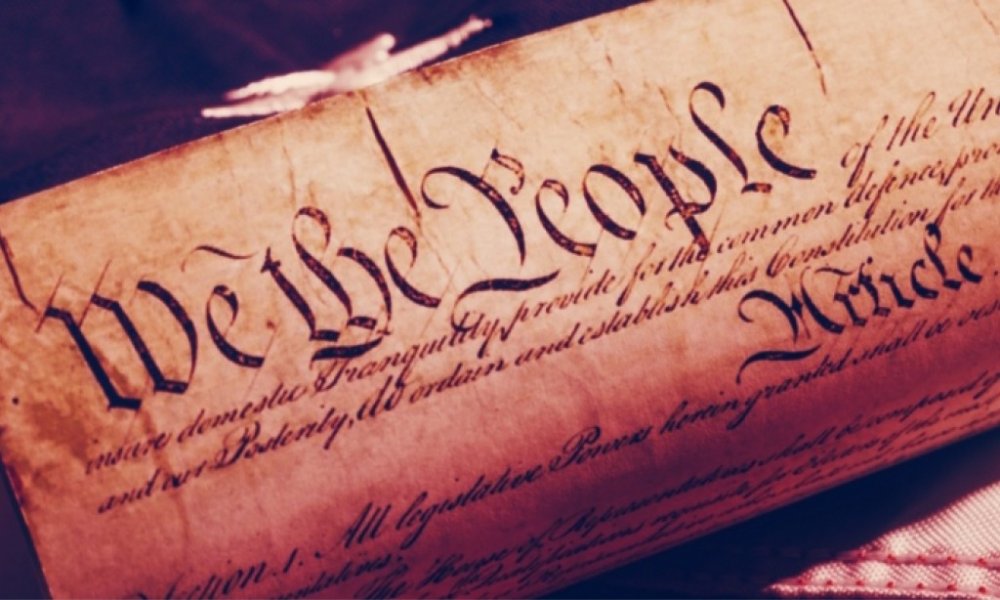 We the People of the Un
insure domestic Tranquility, provide for the common defence, pro
and our Posterity, do ordain and establish this Constitution for the
Article
Section. 1. All legislative Powers herein granted shall be ves
House of Representatives shall be composed